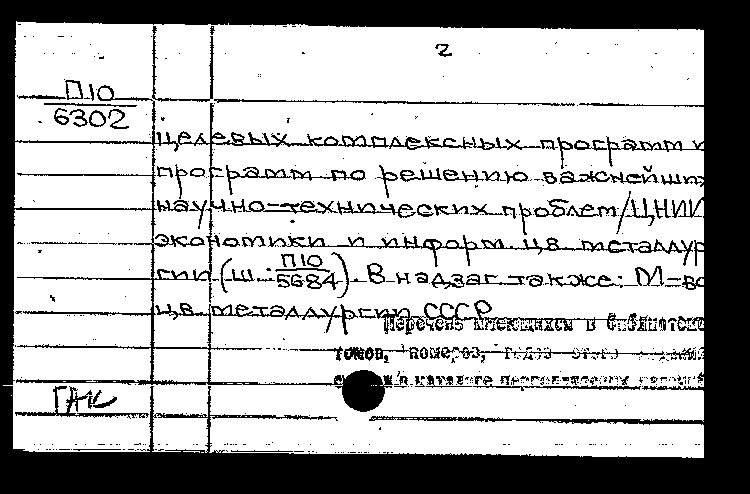 2
П10
6302
целевых комплексных программ и
программ по решению важнейш
научно-технических проблем/ЦНИИ
экономики и информ. цв. металлур
гии (ш.: П10
5684). В надзаг. также: М-во
цв. металлургии СССР
Перечень имеющихся в библиотеке
томов, номеров, годов этого издания
в каталоге периодических изданий
ГАК